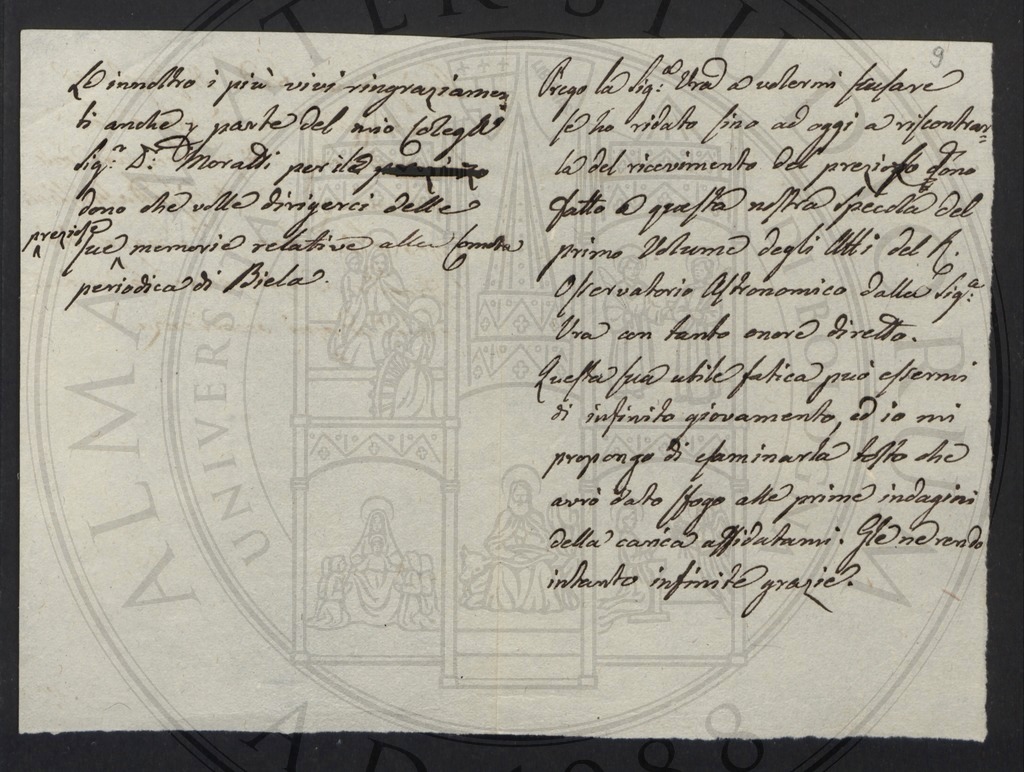 9
Le innoltro i più vivi ringraziamen-
ti anche p parte del mio Collega
Sig.r D.r Moratti per il
dono che volle dirigerci delle
preziose
sue memorie relative alla Cometa
periodica di Biela.
Prego la Sig.a Vra a volermi scusare
se ho ridato sino ad oggi a riscontrar=
la del ricevimento del prezioso dono
fatto a questa nostra Specola del
primo Volume degli Atti del R.
Osservatorio Astronomico dalla Sig.a
Vra con tanto onore diretto.
Questa sua utile fatica può essermi
di infinito giovamento, ed io mi
propongo di esaminarla tosto che
avrò dato sfogo alle prime indagini
della carica affidatami. Gle ne rendo
intanto infinite grazie.
ALMA MATER STUDIORUM
UNIVERS BOLOGN
A.D. 1088